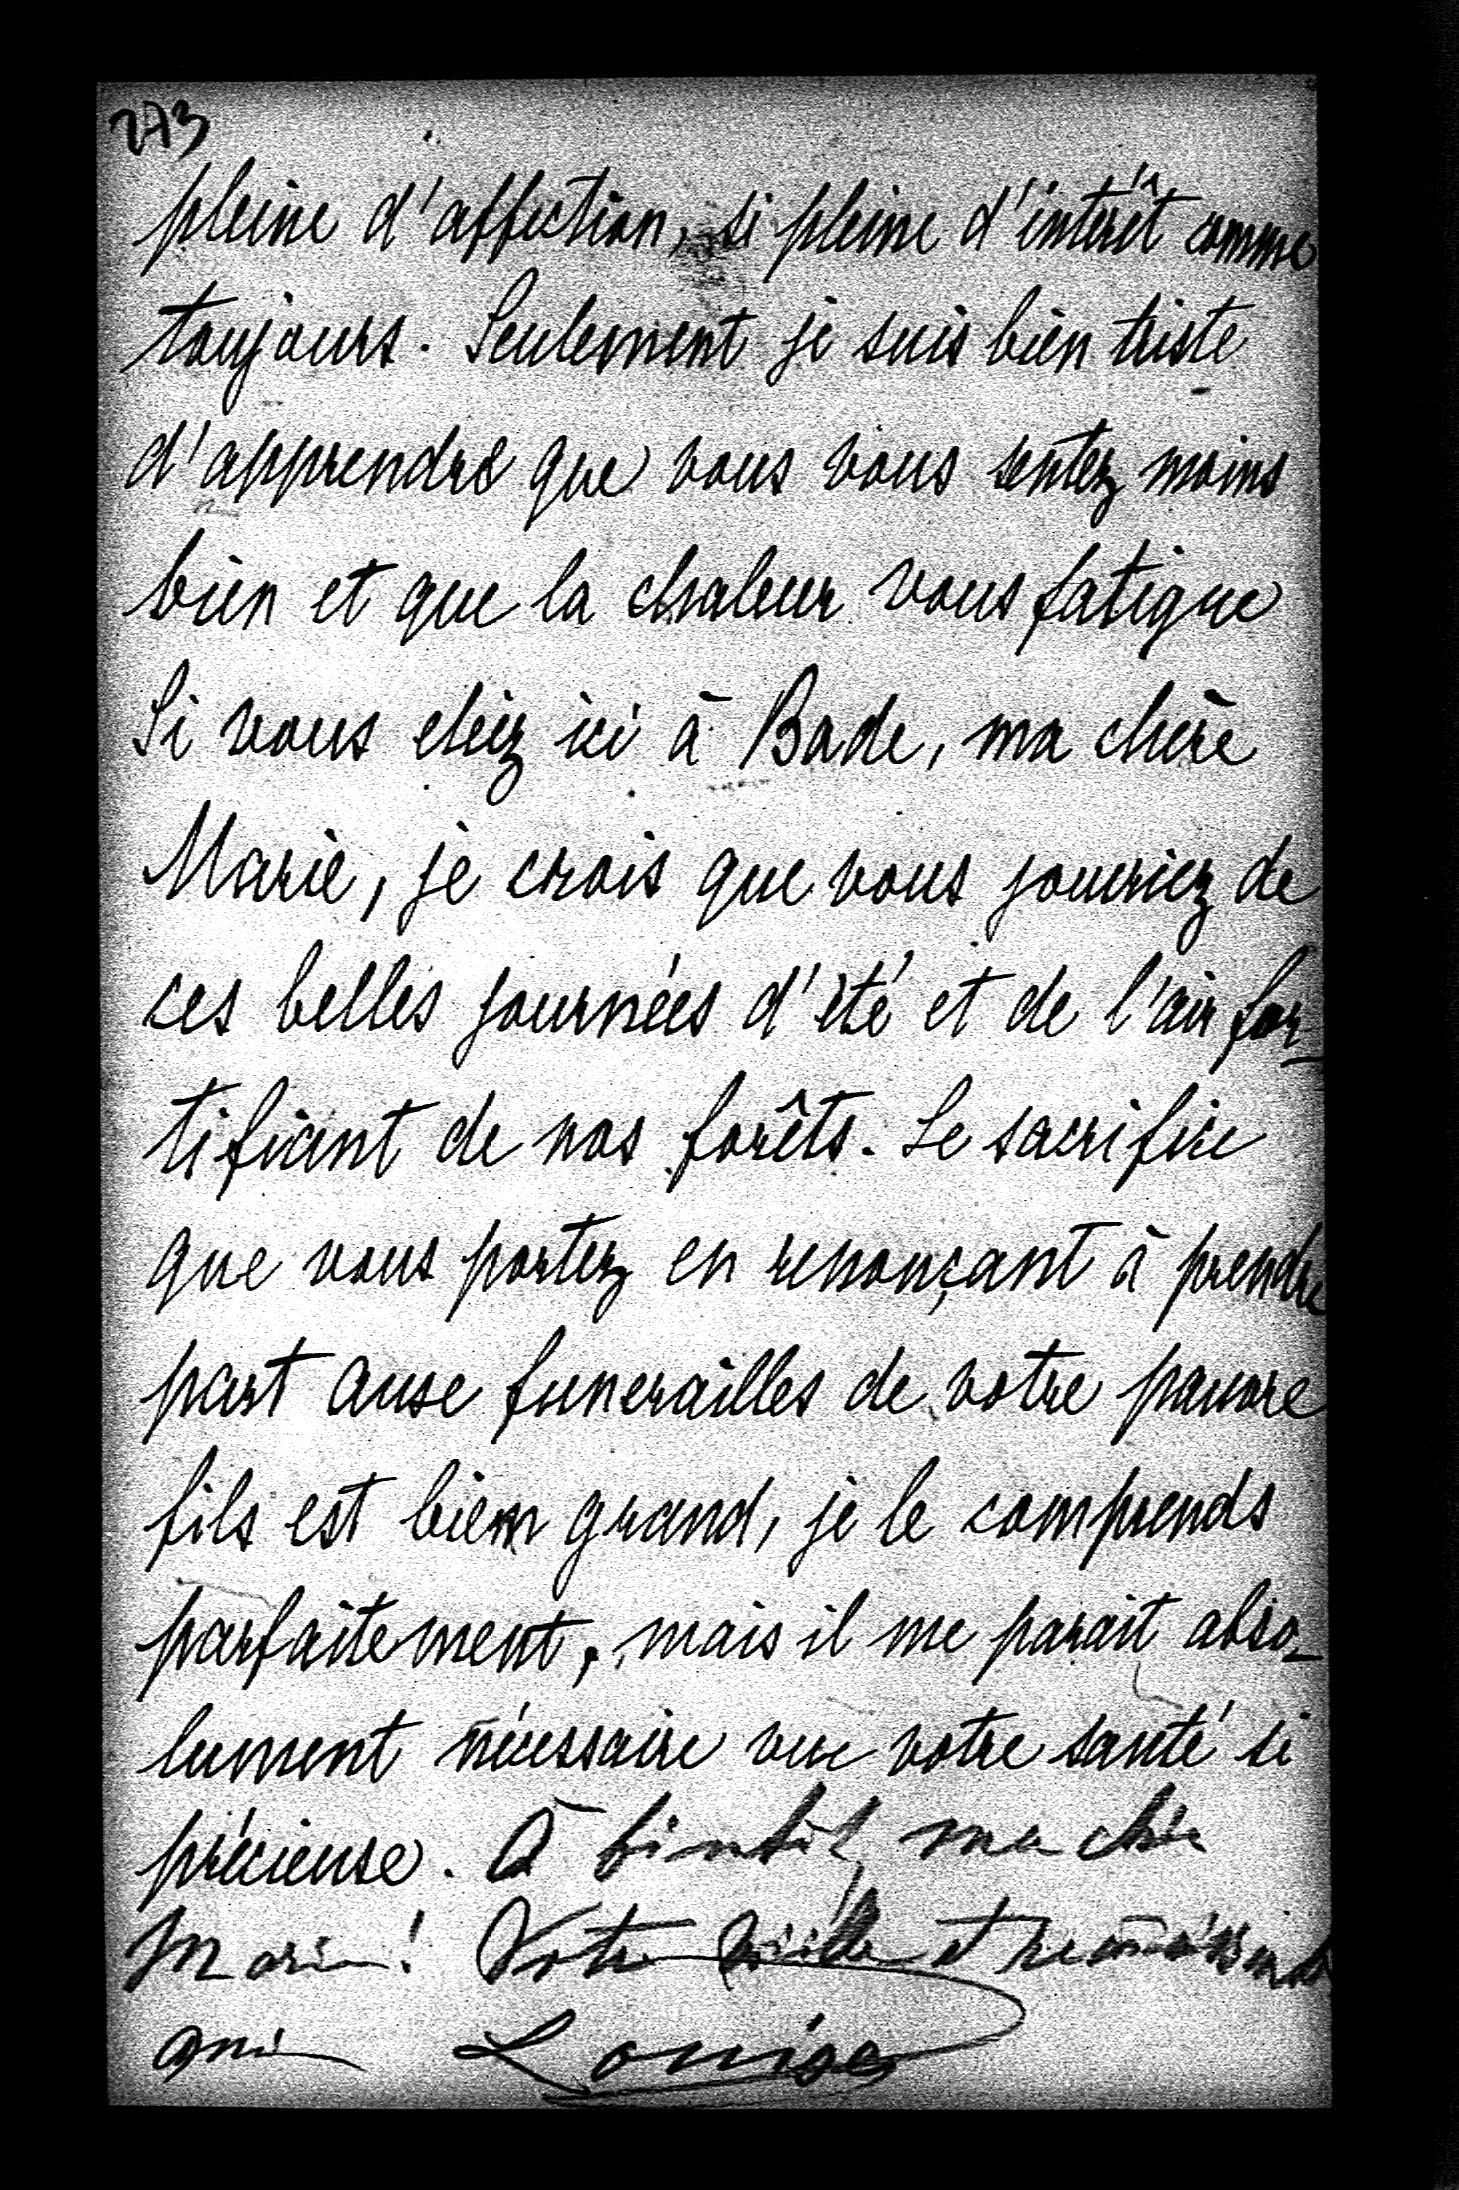 273
pleine d'affection, si pleine d'intérêt comme
toujours. Seulement je suis bien triste
d'apprendre que vous vous sentez moins
bien et que la chaleur vous fatigue
Si vous etiez ici à Bade, ma chère
Marie, je crois que vous jouiriez de
ces belles journées d'été et de l'air for-
tifiant de nos forêts. Le sacrifice
que vous portez en renonçant à prendre
part aux funerailles de votre pauvre
fils est bien grand, je le comprends
parfaitement, mais il me parait abso-
lument nécessaire vue votre santé si
précieuse. À bientôt, ma chère
Marie! Votre vieille et reconnaissante
amie Louise